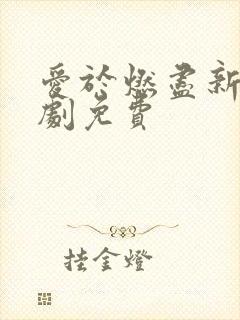 愛於燃盡新
劇免費
挂金燈